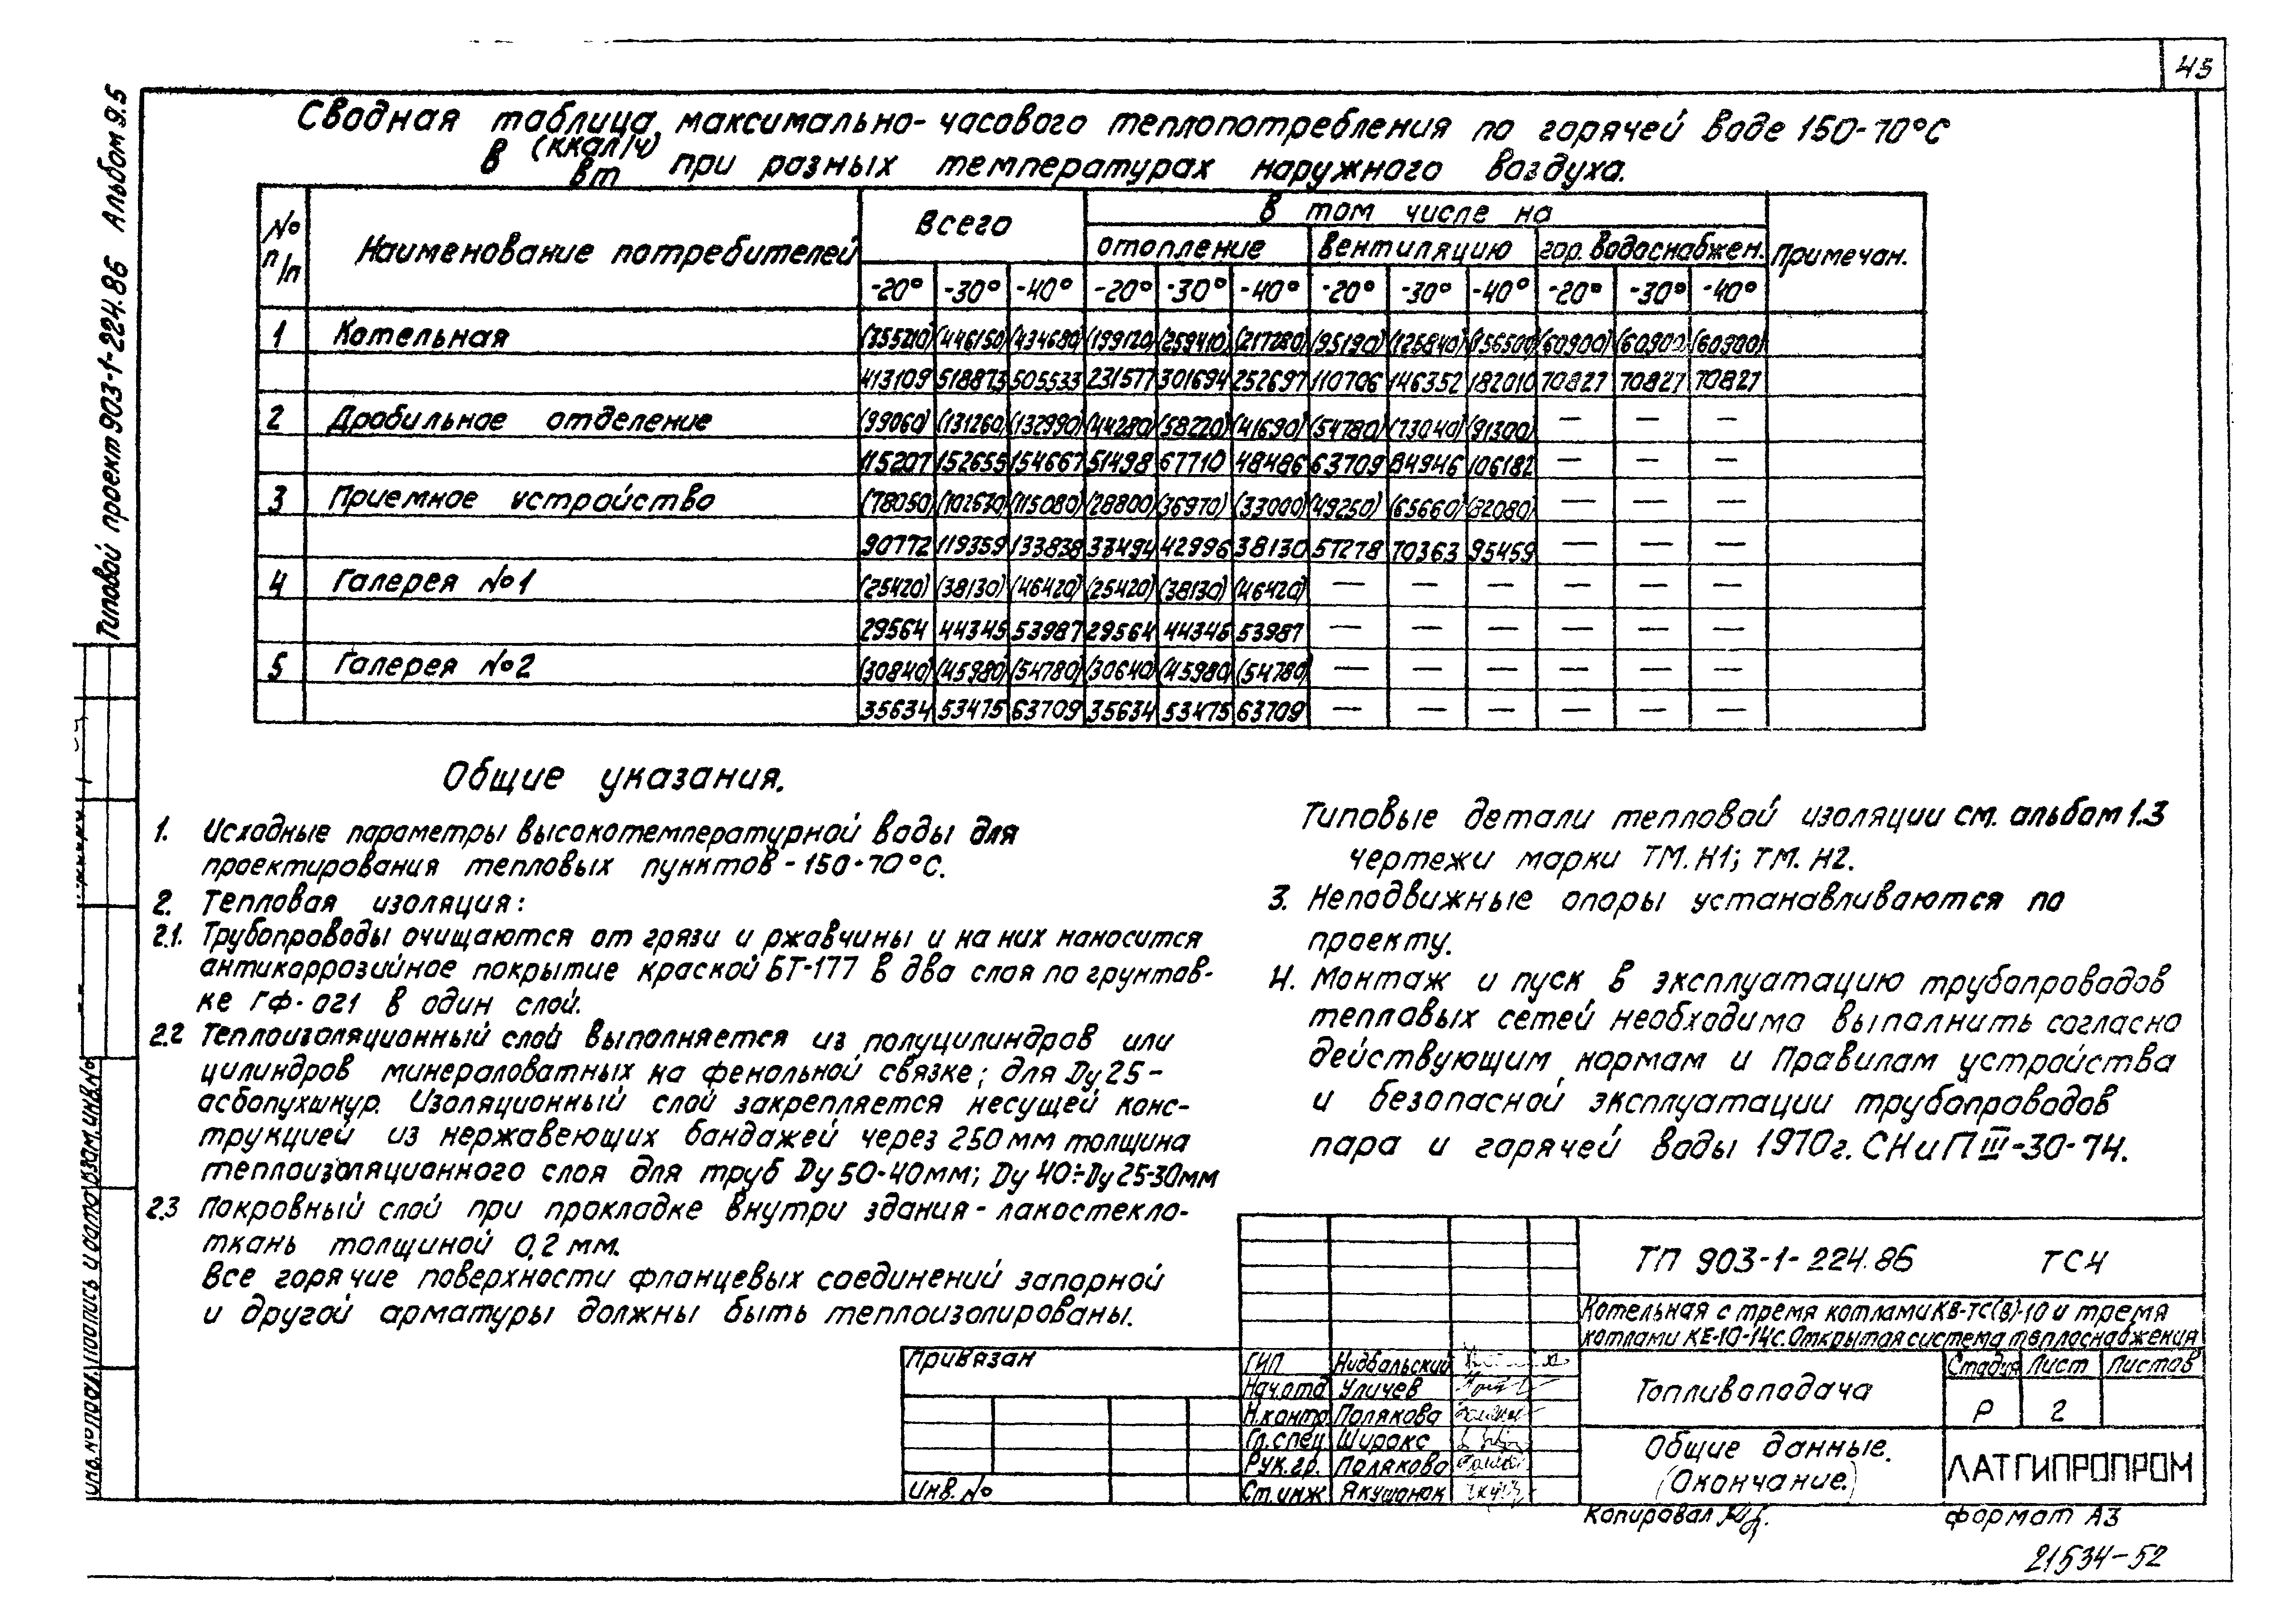 45
Типовой проект 903-1-224.86 Альбом 9.5
Сводная таблица максимально-часового теплопотребления по горячей воде 150-70°С
в (ккал/ч) вт при разных температурах наружного воздуха.
№ п/п | Наименование потребителей | Всего | В том числе на | Примечан.
отопление | вентиляцию | гор. водоснабжен.
-20° -30° -40° -20° -30° -40° -20° -30° -40° -20° -30° -40°
1 Котельная (355210) (446150) (434680) (199120) (259410) (217280) (95190) (125840) (156500) (60900) (60900) (60900)
413109 518873 505533 231577 301694 252697 110706 146352 182010 70827 70827 70827
2 Дробильное отделение (99060) (131260) (132990) (44280) (58220) (41690) (54780) (73040) (91300) — — —
115207 152655 154667 51498 67710 48486 63709 84946 106182 — — —
3 Приемное устройство (78050) (102630) (115080) (28800) (36970) (33000) (49250) (65660) (82080) — — —
90772 119359 133838 33494 42996 38130 57278 70363 95459 — — —
4 Галерея №1 (25420) (38130) (46420) (25420) (38130) (46420) — — — — — —
29564 44345 53987 29564 44346 53987 — — — — — —
5 Галерея №2 (30840) (45980) (54780) (30640) (45980) (54780) — — — — — —
35634 53475 63709 35634 53475 63709 — — — — — —
Общие указания.
1. Исходные параметры высокотемпературной воды для
проектирования тепловых пунктов - 150-70°С.
2. Тепловая изоляция:
2.1. Трубопроводы очищаются от грязи и ржавчины и на них наносится
антикоррозийное покрытие краской БТ-177 в два слоя по грунтов-
ке ГФ-021 в один слой.
2.2 Теплоизоляционный слой выполняется из полуцилиндров или
цилиндров минераловатных на фенольной связке; для Dу 25-
асбопухшнур. Изоляционный слой закрепляется несущей конс-
трукцией из нержавеющих бандажей через 250 мм толщина
теплоизоляционного слоя для труб Dу 50-40мм; Dу 40÷Dу 25-30мм
2.3 Покровный слой при прокладке внутри здания - лакостекло-
ткань толщиной 0,2 мм.
Все горячие поверхности фланцевых соединений запорной
и другой арматуры должны быть теплоизолированы.
Типовые детали тепловой изоляции см. альбом 1.3
чертежи марки ТМ.Н1; ТМ.Н2.
3. Неподвижные опоры устанавливаются по
проекту.
4. Монтаж и пуск в эксплуатацию трубопроводов
тепловых сетей необходимо выполнить согласно
действующим нормам и Правилам устройства
и безопасной эксплуатации трубопроводов
пара и горячей воды 1970г. СНиП III-30-74.
ТП 903-1-224.86 ТС4
Котельная с тремя котлами КВ-ТС(В)-10 и тремя
котлами КЕ-10-14С. Открытая система теплоснабжения
Привязан
Инв. №
ГИП Нидбальский
Нач.отд Уличев
Н.контр Полякова
Гл.спец Широкс
Рук.гр. Полякова
Ст.инж Якушанок
Топливоподача
Стадия Лист Листов
Р 2
Общие данные.
(Окончание.)
ЛАТГИПРОПРОМ
Копировал
формат А3
21534-52
Инв. № подл. Подпись и дата Взам.инв.№